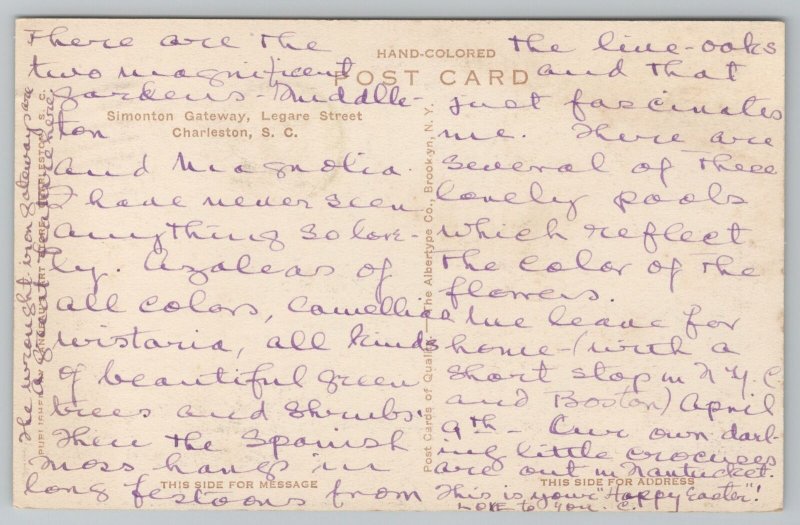 There are the
two magnificent
gardens - Middle-
ton
and Magnolia.
I have never seen
anything so love-
ly. Azaleas of
all colors, camellias
wistaria, all kinds
of beautiful green
trees and shrubs.
Then the Spanish
Moss hangs in
long festoons from
the live-oaks
and that
just fascinates
me. There are
several of these
lovely pools
which reflect
the color of the
flowers.
We leave for
home - (with a
short stop in N.Y.C.
and Boston) April
9th - Our own darl-
ing little crocuses
are out in Nantucket.
This is your "Happy Easter"!
Love to you. C.
The wrought iron gateways are
a great feature here
HAND-COLORED
POST CARD
Simonton Gateway, Legare Street
Charleston, S. C.
THIS SIDE FOR MESSAGE
THIS SIDE FOR ADDRESS
Post Cards of Quality—The Albertype Co., Brooklyn, N. Y.
PUBLISHED BY ART STORE, CHARLESTON, S. C.